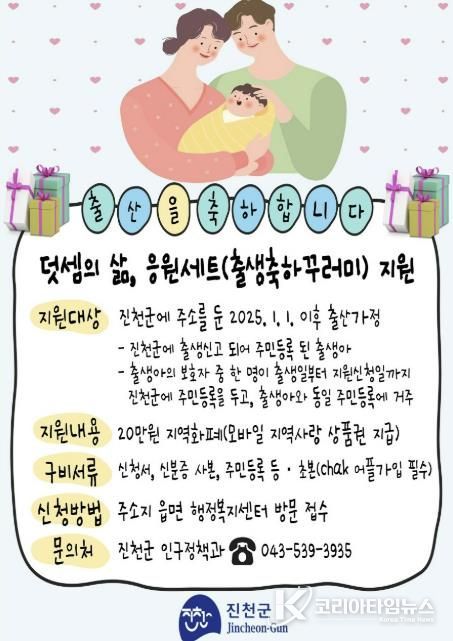 출산을축하합니다
덧셈의 삶, 응원세트(출생축하꾸러미) 지원
지원대상 진천군에 주소를 둔 2025. 1. 1. 이후 출산가정
- 진천군에 출생신고 되어 주민등록 된 출생아
- 출생아의 보호자 중 한 명이 출생일부터 지원신청일까지
진천군에 주민등록을 두고, 출생아와 동일 주민등록에 거주
지원내용 20만원 지역화폐(모바일 지역사랑 상품권 지급)
구비서류 신청서, 신분증 사본, 주민등록 등·초본(chak 어플가입 필수)
신청방법 주소지 읍면 행정복지센터 방문 접수
문의처 진천군 인구정책과 ☎ 043-539-3935
진천군
Jincheon-Gun
K 코리아타임뉴스
Korea Time News